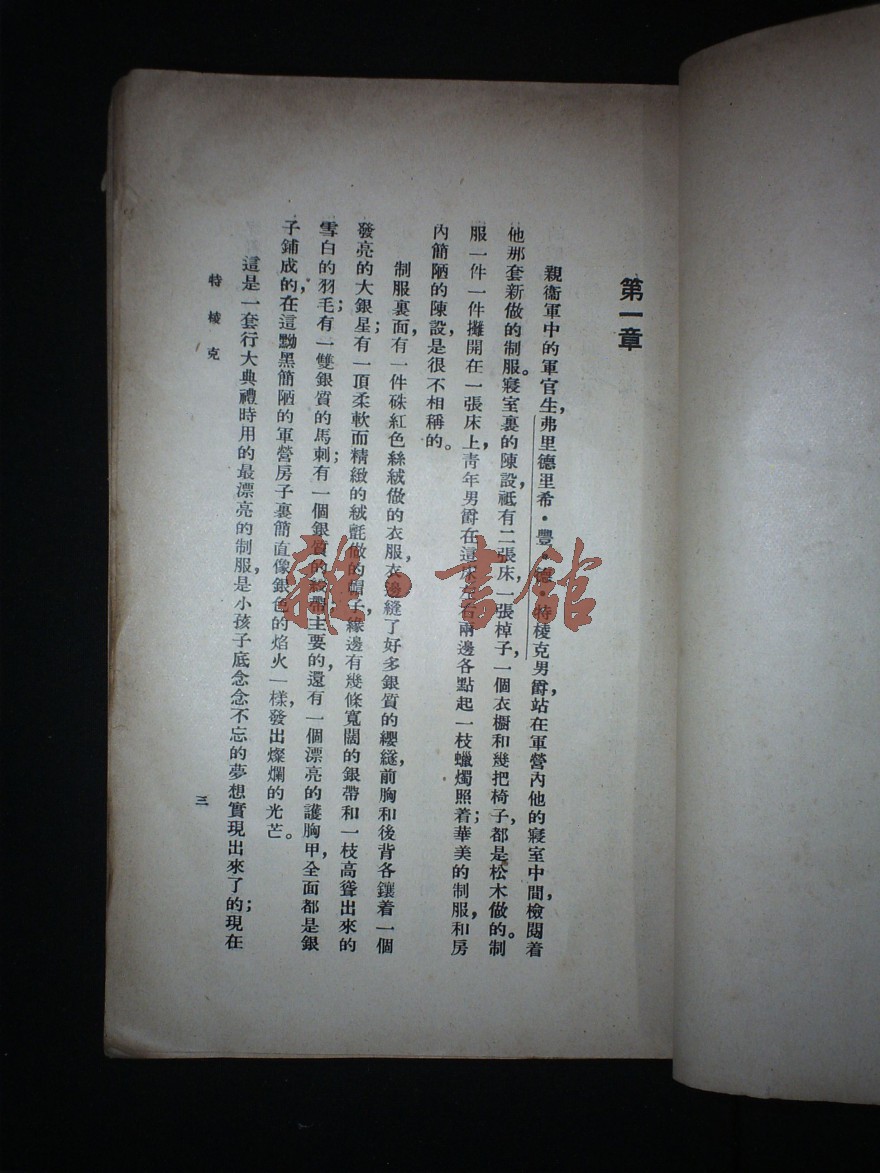 第一章
親衞軍中的軍官生，弗里德里希·豐·德·特棱克男爵，站在軍營內他的寢室中間檢閱着
他那套新做的制服。寢室裏的陳設，祗有二張床，一張棹子，一個衣櫥和幾把椅子，都是松木做的。制
服一件一件攤開在一張床上，青年男爵在這床左右兩邊各點起一枝蠟燭照着；華美的制服，和房
內簡陋的陳設，是很不相稱的。
制服裏面，有一件硃紅色絲絨做的衣服，衣邊縫了好多銀質的纓䍁，前胸和後背各鑲着一個
發亮的大銀星；有一頂柔軟而精緻的絨氈做的帽子，緣邊有幾條寬闊的銀帶和一枝高聳出來的
雪白的羽毛；有一雙銀質的馬刺；有一個銀質的綬帶；主要的，還有一個漂亮的護胸甲，全面都是銀
子鋪成的，在這黝黑簡陋的軍營房子裏簡直像銀色的焰火一樣，發出燦爛的光芒。
這是一套行大典禮時用的最漂亮的制服，是小孩子底念念不忘的夢想實現出來了的；現在
特棱克
三
雜·書館